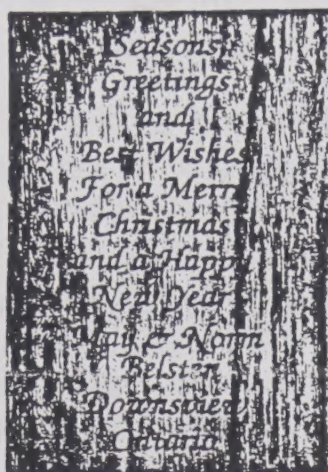 Seasons
Greetings
and
Best Wishes
For a Merry
Christmas
and a Happy
New Year
May & Norm
Belster
Downsview
Ontario